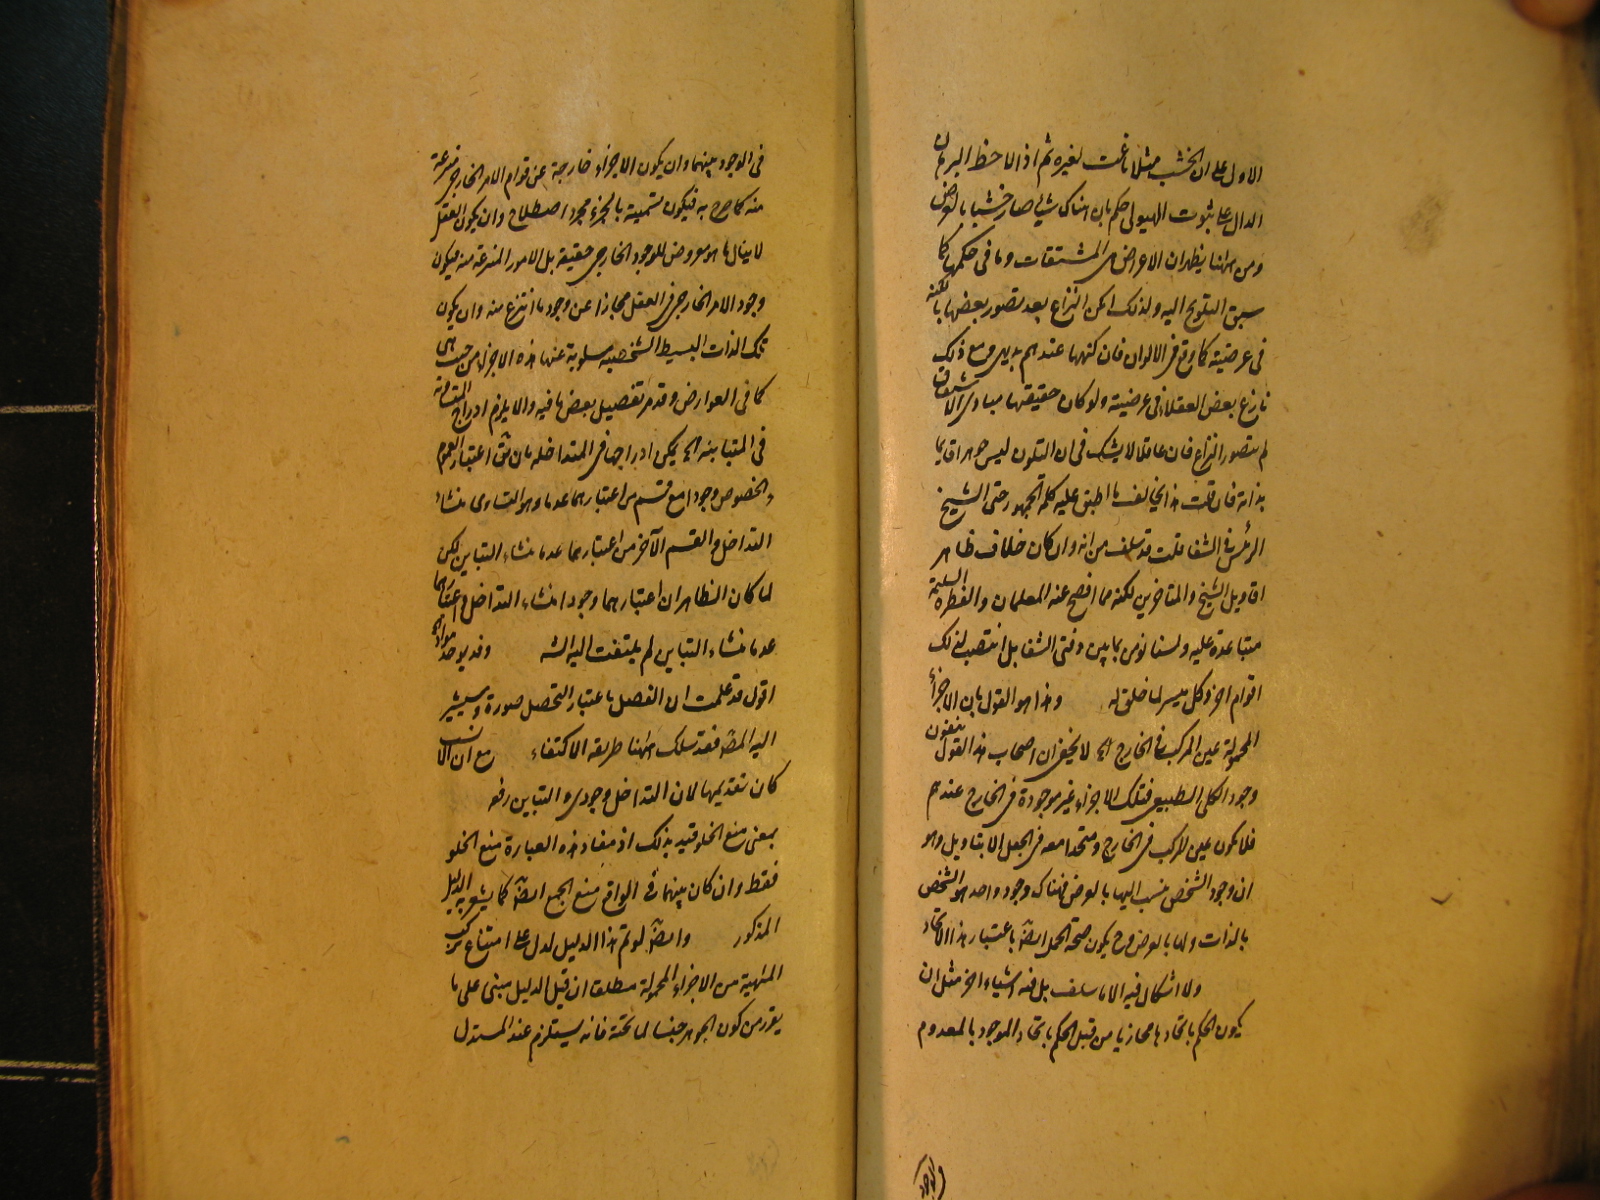 الاول على ان الخشب مثلا ناعت لغيره ثم اذا لاحظ البرهان
الدال على ثبوت الهيولى حكم بان هناك شئ صار خشبا بالعرض
ومن ههنا يظهر ان الاعراض هى المشتقات وما فى حكمها كما
سبق التلويح اليه ولذلك امكن النزاع بعد تصور بعضها بالكنه
فى عرضيته كما وقع فى الالوان فان كنهها عندهم بديهى ومع ذلك
نازع بعض العقلاء فى عرضيته ولو كان حقيقتها مبادى الاشتقاق
لم يتصور النزاع فان عاقلا لا يشك فى ان التلون ليس جوهرا قائما
بذاته فان قلت هذا يخالف ما اطبق عليه كلمة الجمهور حتى الشيخ
الرئيس فى الشفا قلت قد سلف من انه وان كان خلاف ظاهر
اقاويل الشيخ والمتاخرين لكنه مما افصح عنه المعلمان والفطرة السليمة
متباعدة عليه ولسنا نؤمن بما بين دفتى الشفا بل انتصب لذلك
اقوام اخر وكل ميسر لما خلق له وهذا هو القول بان الاجزاء
المحمولة عين المركب فى الخارج الخ لا يخفى ان اصحاب هذا القول ينفون
وجود الكلى الطبيعى فتلك الاجزاء غير موجودة فى الخارج عندهم
فلا يكون عين المركب فى الخارج ومتحدا معه فى الجعل الا بتاويل وهو
ان وجود الشخص ينسب اليها بالعرض فهناك وجود واحد هو الشخص
بالذات ولها بالعرض وح يكون صحة الحمل ايضا باعتبار هذا الاتحاد
ولا اشكال فيه الا ما سلف بل فيه اشياء اخر مثل ان
يكون الحكم باتحادها مجازيا من قبل الحكم باتحاد الموجود بالمعدوم
فى الوجود بينهما وان يكون الاجزاء خارجة عن قوام الامر الخارجى منتزعة
منه كما صرح به فيكون تسميته بالجزء مجرد اصطلاح وان يكون العقل
لا ينال ما هو معروض للوجود الخارجى حقيقة بل الامور المنتزعة منه فيكون
وجود الامر الخارجى فى العقل مجازا عن وجود ما انتزع منه وان يكون
تلك الذات البسيط الشخصيه مسلوبة عنها هذه الاجزاء من حيث هى
كما فى العوارض وقد مر تفصيل بعض ما فيه والا يلزم ادراج المتساوية
فى المتباينة الخ يمكن ادراجها فى المتداخله بان يق اعتبار العموم
والخصوص وجودا مع قسم من اعتبارهما عدما وهو التساوى منشاء
التداخل والقسم الآخر من اعتبارهما عدما منشاء التباين لكن
لما كان الظاهر ان اعتبارهما وجودا منشاء التداخل واعتبارهما
عدما منشاء التباين لم يلتفت اليه الشه وقد يوخذ موادها
اقول قد علمت ان الفصل باعتبار التحصل صورة وسيشير
اليه المصنف فقد سلك ههنا طريقه الاكتفاء مع ان الانسب
كان تقديمها لان التداخل وجودى والتباين رفعه
بمعنى منع الخلو قيد بذلك اذ مفاد هذه العبارة منع الخلو
فقط وان كان بينهما فى الواقع منع الجمع ايضا كما يشعر به الدليل
المذكور وايضا لو تم هذا الدليل لدل على امتناع تركب
المهية من الاجزاء المحمولة مطلقا ان قيل الدليل مبنى على ما
يقرر من كون الجوهر جنسا لما تحته فانه يستلزم عند المستدل